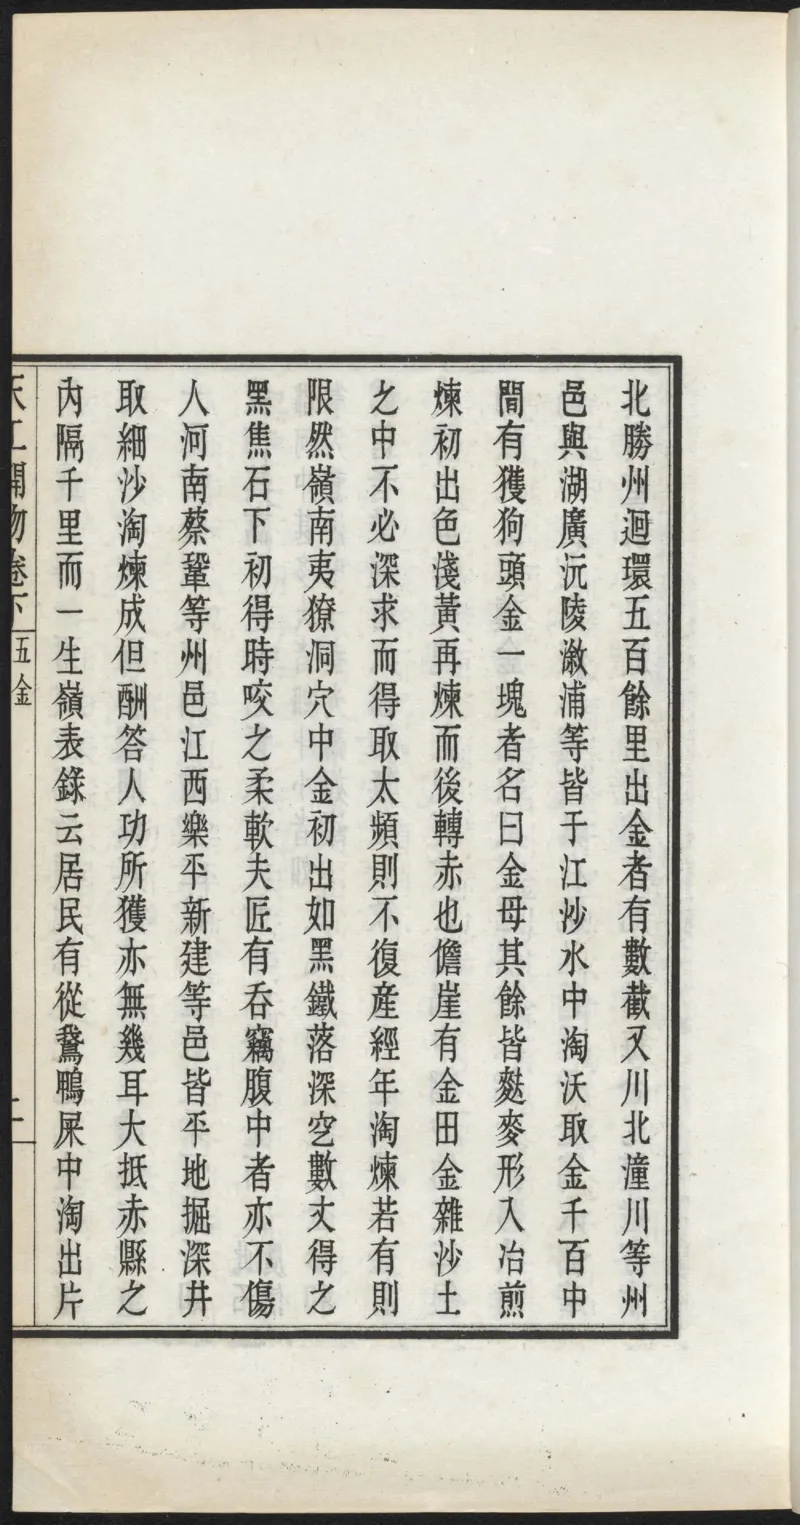 北勝州迴環五百餘里出金者有數截又川北潼川等州
邑與湖廣沅陵漵浦等皆于江沙水中淘沃取金千百中
間有獲狗頭金一塊者名曰金母其餘皆麩麥形入冶煎
煉初出色淺黃再煉而後轉赤也儋崖有金田金雜沙土
之中不必深求而得取太頻則不復産經年淘煉若有則
限然嶺南夷獠洞穴中金初出如黑鐵落深空數丈得之
黑焦石下初得時咬之柔軟夫匠有吞竊腹中者亦不傷
人河南蔡鞏等州邑江西樂平新建等邑皆平地掘深井
取細沙淘煉成但酬答人功所獲亦無幾耳大抵赤縣之
內隔千里而一生嶺表錄云居民有從鵞鴨屎中淘出片
天工開物卷下 五金 二